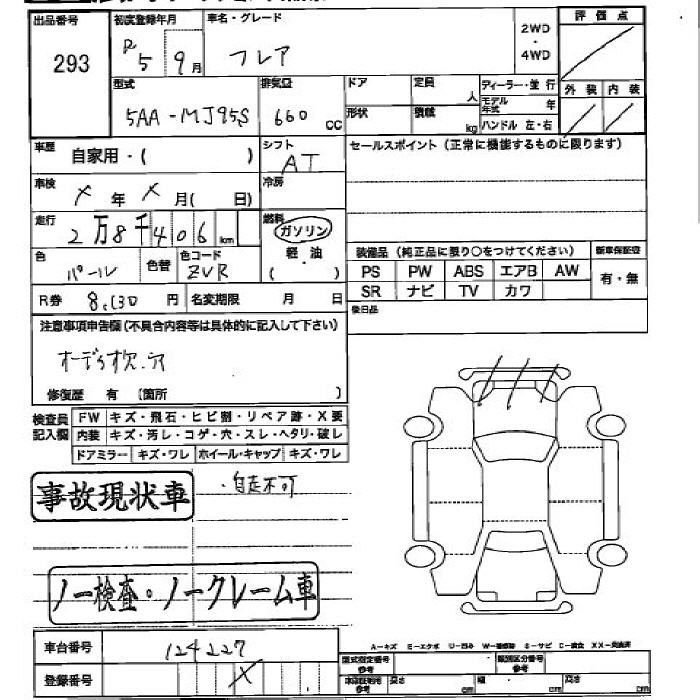 出品番号 293
初度登録年月 R5 9月
車名・グレード フレア
2WD・4WD
評価点
外装 内装
型式 5AA-MJ95S
排気量 660 CC
ドア 定員 人
形状 積載 kg
ディーラー・並行
モデル年式 年
ハンドル 左・右
車歴 自家用・( )
シフト AT
セールスポイント(正常に機能するものに限ります)
車検 X年X月( 日)
冷房
走行 2万8千406km
燃料 ガソリン 軽油 ( )
色 パール 色替 色コード ZVR
装備品(純正品に限り○をつけてください) 新車保証書
PS PW ABS エアB AW 有・無
SR ナビ TV カワ
R券 8,130円 名変期限 月 日
後日品
注意事項申告欄(不具合内容等は具体的に記入して下さい)
オーディオ欠.穴
修復歴 有 (箇所 )
検査員記入欄 FW キズ・飛石・ヒビ割・リペア跡・X要
内装 キズ・汚レ・コゲ・穴・スレ・ヘタリ・破レ
ドアミラー キズ・ワレ ホイール・キャップ キズ・ワレ
事故現状車 ・自走不可
ノー検査・ノークレーム車
車台番号 124227
A-キズ E-エクボ U-凹み W-補修跡 S-サビ C-腐食 XX-交換済
型式指定番号 参考 類別区分番号 参考
登録番号 X
車検証寸法 参考 長さ cm 幅 cm 高さ cm